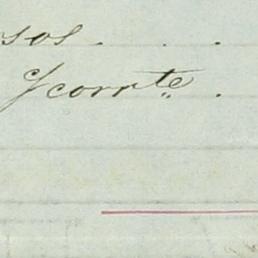 sos . . .
C/ corr.te .